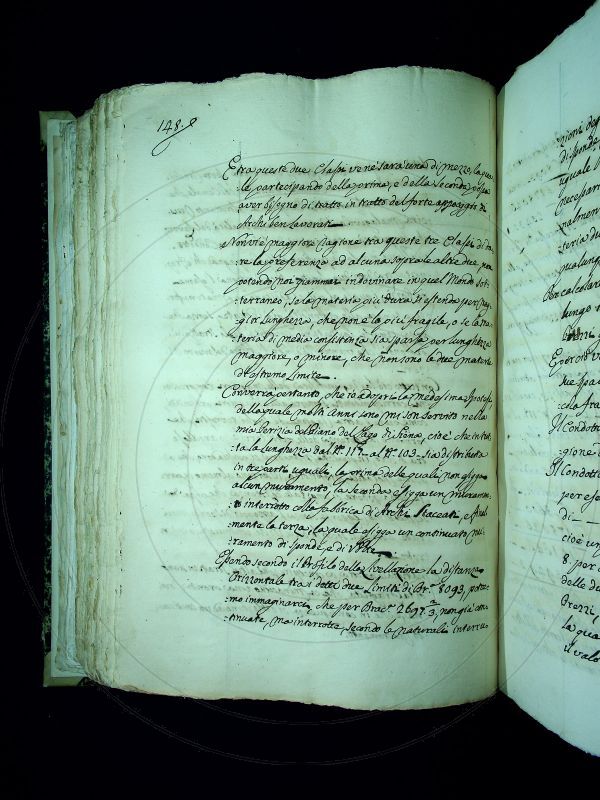 148.
E tra queste due Classi ve ne sarà una di mezzo, la qua-
:le partecipando della prima, e della seconda possa
aver bisogno di tratto in tratto del forte appoggio di
Archi ben lavorati.
Non vi è maggiore ragione tra queste tre Classi di da-
:re la preferenza ad alcuna sopra le altre due, non
potendo noi giammai indovinare in quel Mondo sot-
:terraneo, se la materia più dura si estenda per mag-
:gior lunghezza, che non è la più fragile, o se la ma-
:teria di media consistenza sia sparsa per lunghezza
maggiore, o minore, che non sono le due materie
di estremo limite.
Converrà pertanto, che io adopri la medesima Ipotesi,
della quale molti Anni sono mi son servito nella
mia Perizia del Piano del Lago di Siena, cioè che tut-
:ta la lunghezza dal N.° 117. al N.° 103. sia distribuita
in tre parti uguali, la prima delle quali non esigga
alcun muramento, la seconda esigga un muramen-
:to interrotto colla fabbrica di Archi staccati, e final-
:mente la terza, la quale esigga un continuato mu-
:ramento di sponde, e di Volte.
Essendo secondo il Profilo della Livellazione la distanza
Orizzontale tra i detti due Limiti di Br.ª 8093, potre-
:mo immaginarci, che per Bracc.ª 2697. 2/3, non già con-
:tinuate, ma interrotte, secondo le naturali interru-
zioni
di sponde
uguale
necessari
:nalmen
teria du
qualung
Per calcolare
lungo
Il Condott
Il Condott
per esse
di
cioè un
8. per
delle du
Prezzi,
la qua
il valo